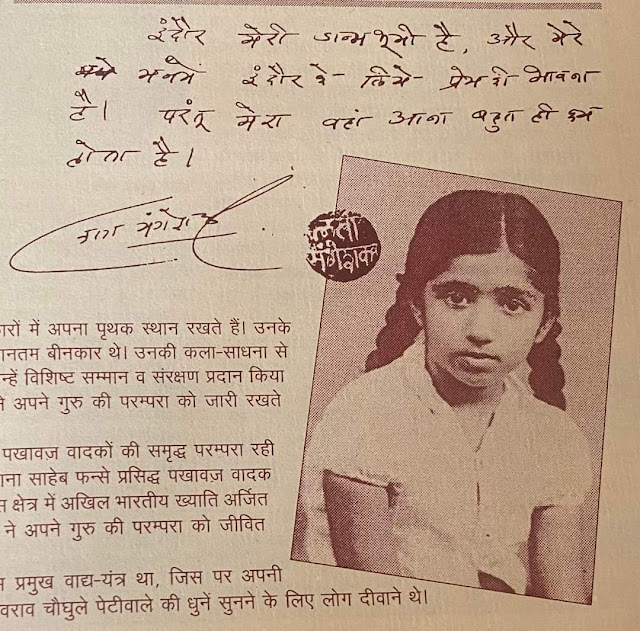 इंदौर मेरी जन्म भूमी है, और मेरे
मनमें इंदौर के लिये प्रेम की भावना
है। परंतू मेरा वहां आना बहुत ही कम
होता है।
लता मंगेशकर
लता
मंगेशकर
कारों में अपना पृथक स्थान रखते हैं। उनके
बीनकार थे। उनकी कला-साधना से
विशिष्ट सम्मान व संरक्षण प्रदान किया
ने अपने गुरु की परम्परा को जारी रखते
पखावज़ वादकों की समृद्ध परम्परा रही
नाना साहेब फन्से प्रसिद्ध पखावज़ वादक
स क्षेत्र में अखिल भारतीय ख्याति अर्जित
ने अपने गुरु की परम्परा को जीवित
प्रमुख वाद्य-यंत्र था, जिस पर अपनी
वराव चौघुले पेटीवाले की धुनें सुनने के लिए लोग दीवाने थे।